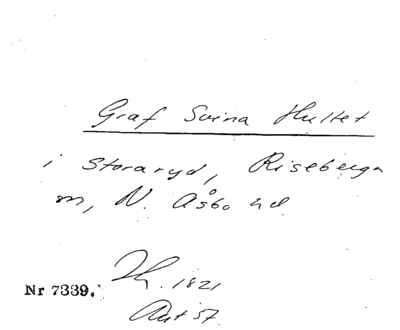 Graf Svina Hultet
i Storaryd, Riseberga
sn, N. Åsbo hd
1821
Nr 7339.
Ant 57.